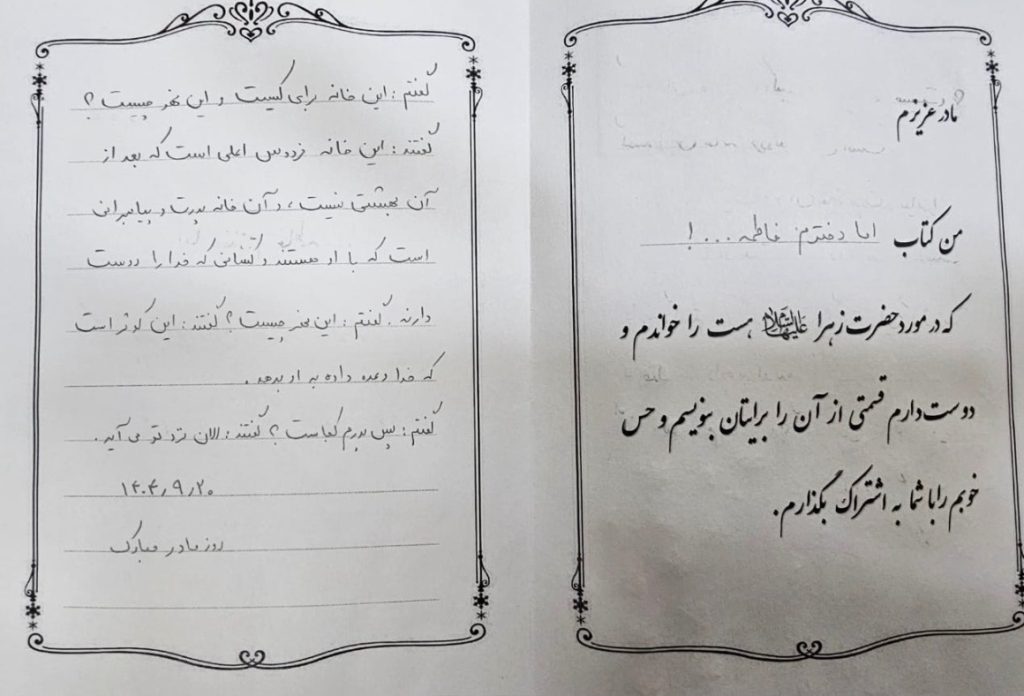 مادر عزیزم
من کتاب اما دخترم فاطمه...!
که در مورد حضرت زهرا علیهاالسلام هست را خواندم و
دوست دارم قسمتی از آن را برایتان بنویسم و حس
خوبم را با شما به اشتراک بگذارم.
گفتم: این خانه برای کیست و این نهر چیست؟
گفتند: این خانه فردوس اعلی است که بعد از
آن بهشتی نیست، و آن خانه پدرت و پیامبرانی
است که با او هستند و کسانی که خدا را دوست
دارند. گفتم: این نهر چیست؟ گفتند: این کوثر است
که خدا وعده داده به او بدهد.
گفتم: پس پدرم کجاست؟ گفتند: الان نزد تو می آید.
۱۴۰۴/۹/۲۰
روز مادر مبارک